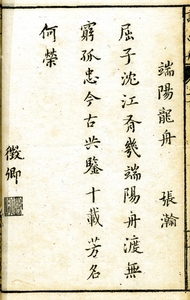 端陽龍舟　張瀚
屈子沈江脊幾端陽舟渡無
窮孤忠今古共鑒十載芳名
何榮
徵卿